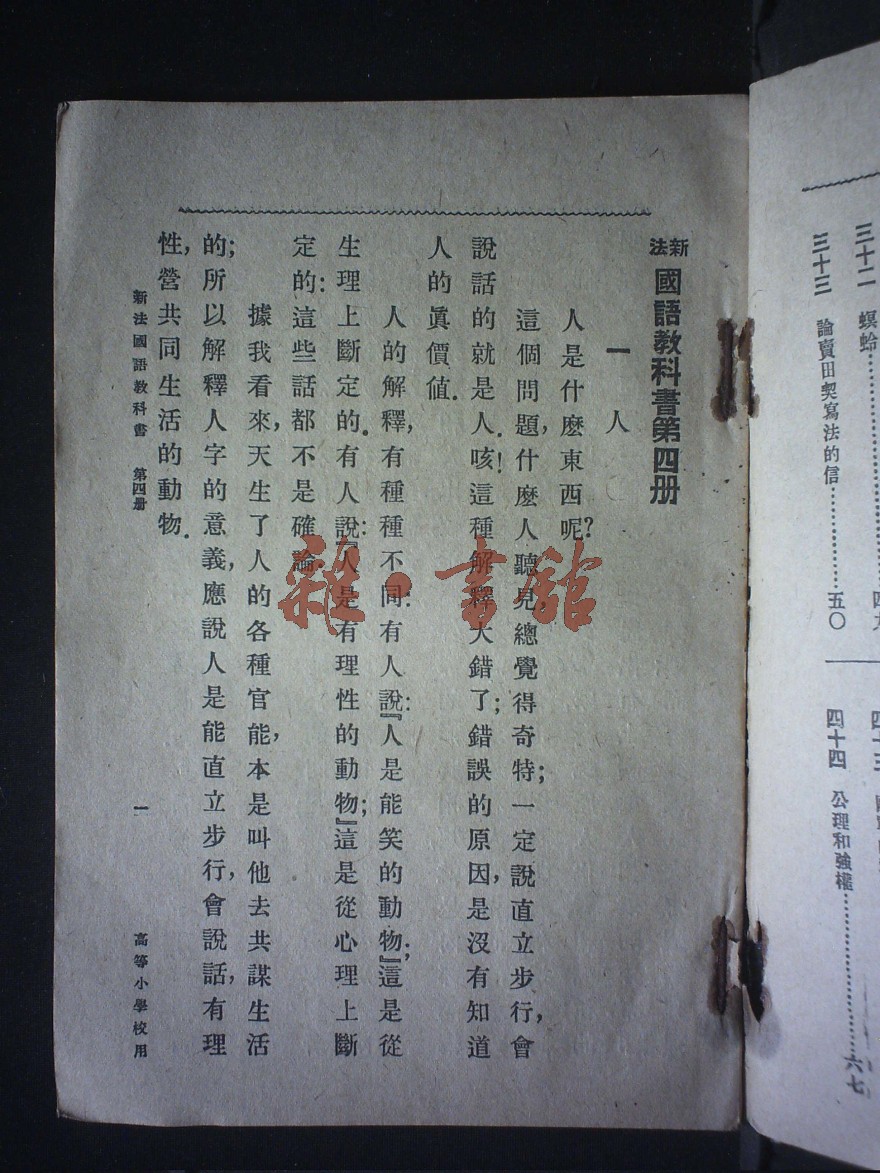 三十二 螟蛉……四九
三十三 論賣田契寫法的信……五〇
四十三
四十四 公理和強權……六七
新法 國語教科書第四册
一 人
人是什麽東西呢?
這個問題,什麽人聽見,總覺得奇特;一定說直立步行,會
說話的就是人.咳!這種解釋大錯了;錯誤的原因,是沒有知道
人的眞價值.
人的解釋,有種種不同:有人說:『人是能笑的動物;』這是從
生理上斷定的.有人說:『人是有理性的動物;』這是從心理上斷
定的:這些話都不是確論.
據我看來,天生了人的各種官能,本是叫他去共謀生活
的;所以解釋人字的意義,應說人是能直立步行,會說話,有理
性,營共同生活的動物.
新法國語教科書 第四册 一 高等小學校用
雜·書館